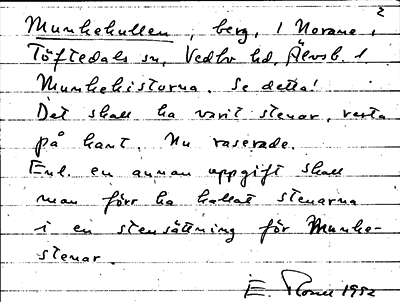 2
Munkekullen, berg, i Norane i
Töftedals sn, Vedbo hd, Älvsb. l.
Munkekistorna. Se detta!
Det skall ha varit stenar, resta
på kant. Nu raserade.
Enl. en annan uppgift skall
man förr ha kallat stenarna
i en stensättning för Munke-
stenar.
E. 1952